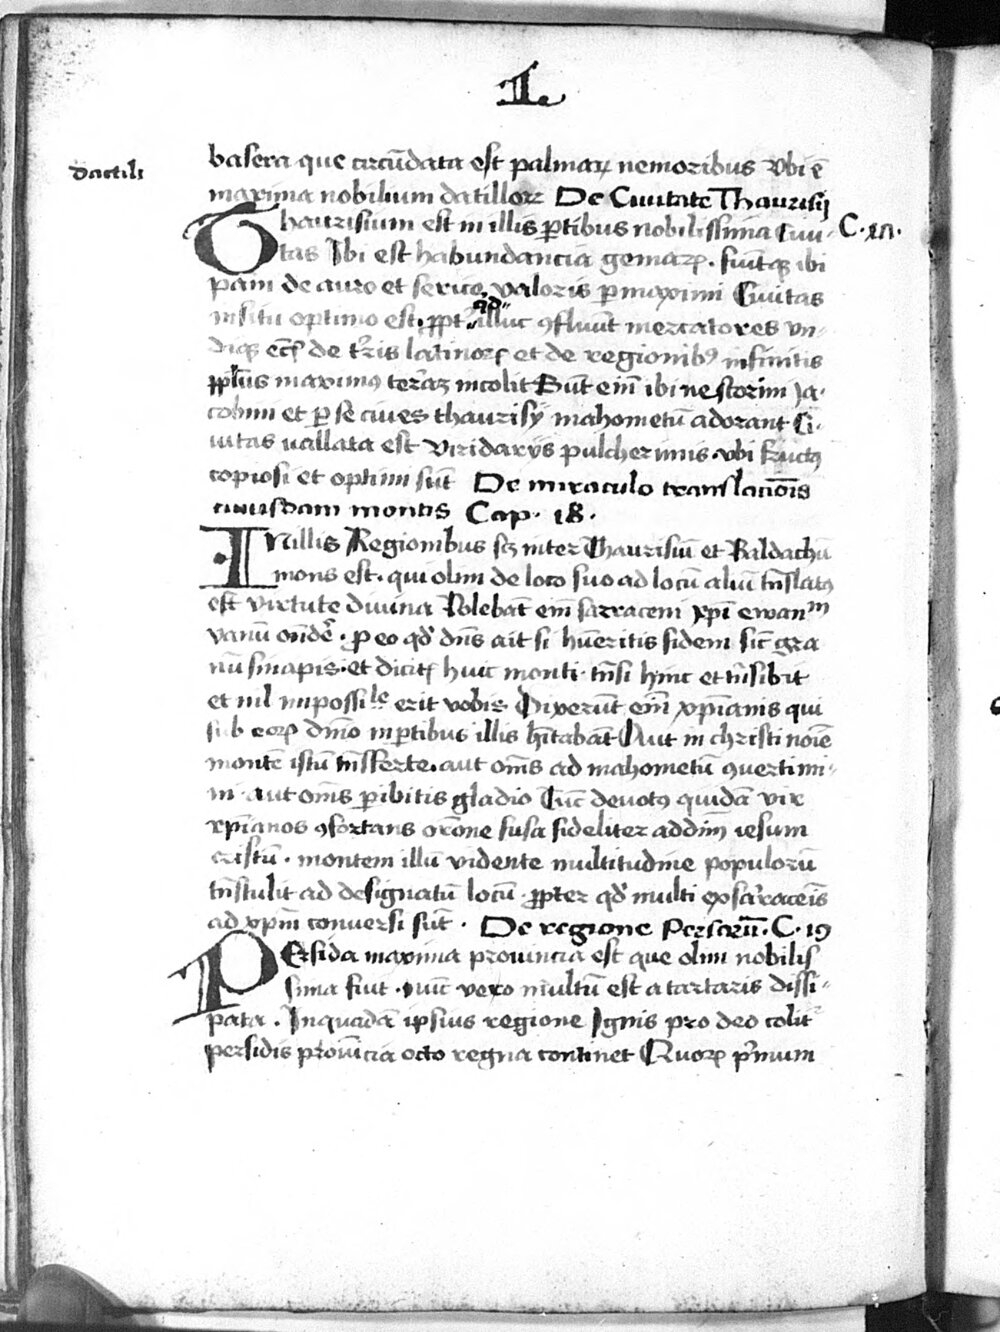 .I.
dactili
basera que circūdata est palmaꝝ nemoribus vbi ē
maxima nobilium datilloꝝ De Ciuitate Thaurisij
C. xvii.
Thaurisium est in illis ꝑtibus nobilissima Ciui-
tas Ibi est habundancia gemaꝝ. fiūtqꝫ ibi
pāni de auro et serico valoris ꝑmaximi Ciuitas
in situ optimo est. ꝓpt̃ qđ illuc ꝯfluūt mercatores vn-
diqꝫ ecc̃ de tr̃is latinoꝝ et de regionibꝰ infinitis
ppl̃us maximꝰ terraꝫ incolit Sunt em̄ ibi nestorini Ja-
cobini et ꝑse ciues thaurisij mahometū adorant Ci-
uitas uallata est viridarijs pulcherimis vbi fructꝰ
copiosi et optimi sūt De miraculo translacōnis
cuiusdam montis Cap. 18.
IN illis Regionibus sꝫ inter Thaurisiū et Baldachū
mons est. qui olim de loco suo ad locū aliū trn̄slatꝰ
est virtute diuina Volebāt em̄ sarraceni xp̄i ewanᵐ
vanū ondẽ. ꝑ eo qđ dn̄s ait si hūeritis fidem sic̄ gra
nū sinapis. et dicitꝭ huic monti. trn̄si hinc et trn̄sibit
et nil impossiˡᵉ erit vobis. Dixerūt em̄ xp̄ianis qui
sub eoꝝ dn̄io in ꝑtibus illis hītabāt Aut in christi noīe
montē istū trn̄sferte. aut om̄s ad mahometū ꝯuertimi-
ni. aut om̄s ꝑibitis gladio Tūc deuotꝰ quidā vir
xp̄ianos ꝯfortans or̄one fusa fideliter ad dn̄m iesum
cristū. montem illū vidente multitudine populorū
trn̄stulit ad designatū locū. ꝓpter qđ multi ex sarraceīs
ad xp̄m conuersi sūt. De regione Persaꝝ. C. 19
PErsida maxima prouincia est que olim nobilis
sima fuit. nūc vero multū est a tartaris dissi-
pata. In quadā ipsius regione Ignis pro deo colit̃
persidis prouīcia octo regna continet Quoꝝ pͥmum